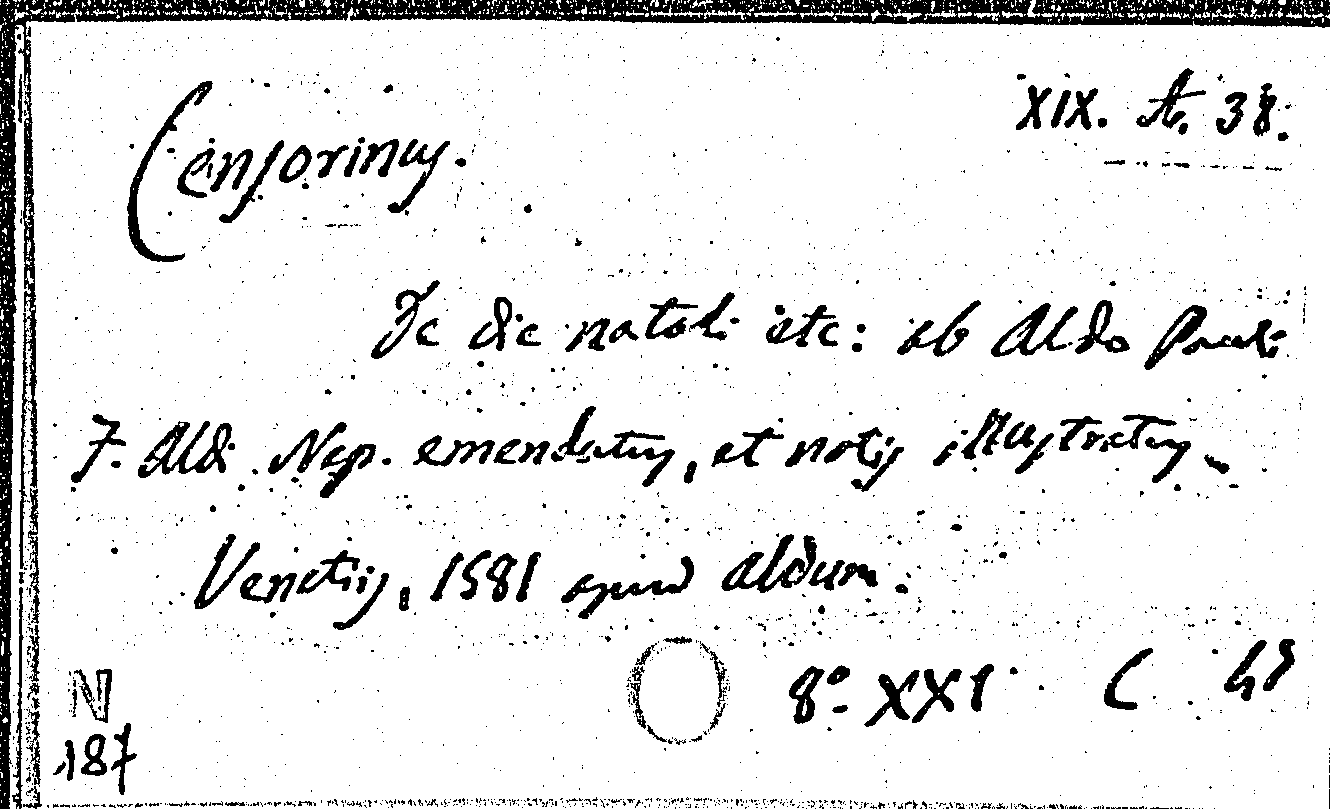 XIX. A. 38.
Censorinus.
De die natali etc: ab Aldo Pauli
F. Aldi Nep. emendatus, et notis illustratus
Venetiis, 1581 apud Aldum.
8º XXI C
N
187